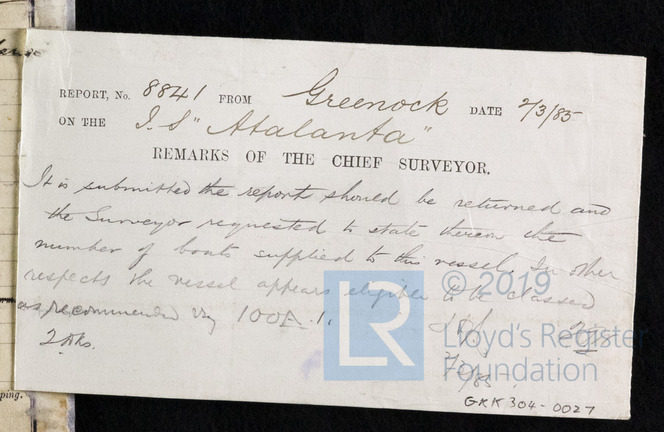 REPORT, No. 8841 FROM Greenock DATE 2/3/85
ON THE I.S "Atalanta"
REMARKS OF THE CHIEF SURVEYOR.
It is submitted the report should be returned and
the Surveyor requested to state thereon the
number of boats supplied to this vessel. In other
respects the vessel appears eligible to be classed
as recommended viz 100A.1.
2 Dks.
LR
© 2019
Lloyd's Register
Foundation
GRK 304-0027
ping.